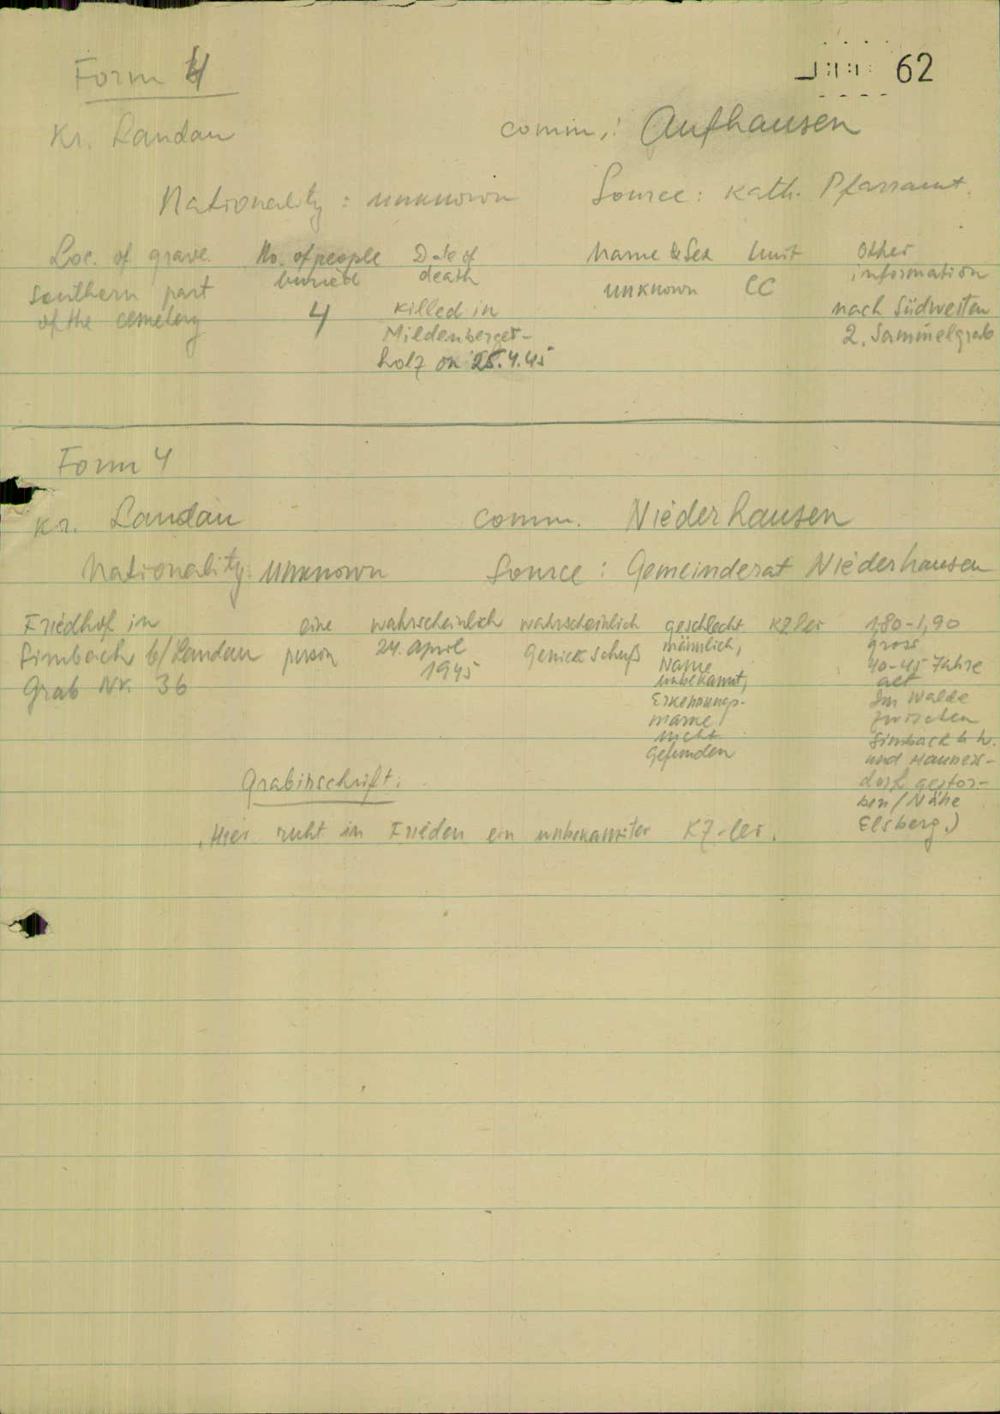 62
Form 4
Kr. Landau comm.: Aufhausen
Nationality: unknown Source: Kath. Pfarramt.
Loc. of grave No. of people buried Date of death Name & Sex Unit Other information
southern part of the cemetery 4 killed in Mildenberger-holz on 25.4.45 unknown CC nach Südwesten 2. Sammelgrab
Form 4
Kr. Landau comm. Niederhausen
Nationality: unknown Source: Gemeinderat Niederhausen
Friedhof in Simbach b/Landau Grab Nr. 36
eine person
wahrscheinlich 24. April 1945
wahrscheinlich Genickschuß
geschlecht männlich, Name unbekannt, Erkennungsmarke nicht gefunden
KZler
1,80-1,90 gross 40-45 Jahre alt Im Walde zwischen Simbach b. L. und gestorben / Nähe Elsberg.)
Grabinschrift:
"Hier ruht in Frieden ein unbekannter KZ-ler.